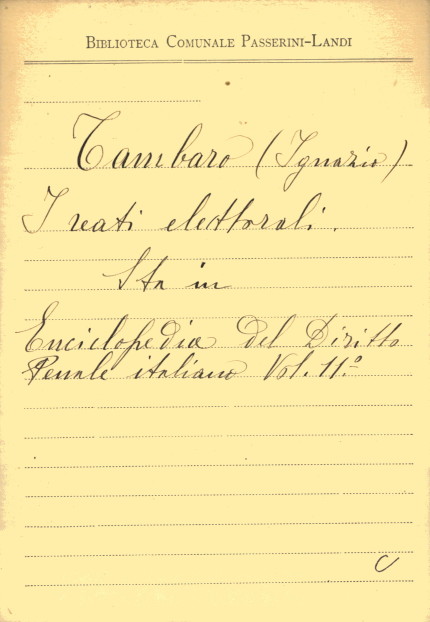 BIBLIOTECA COMUNALE PASSERINI-LANDI
Tambaro (Ignazio)
I reati elettorali.
Sta in
Enciclopedia del Diritto
Penale italiano Vol. 11.º
C